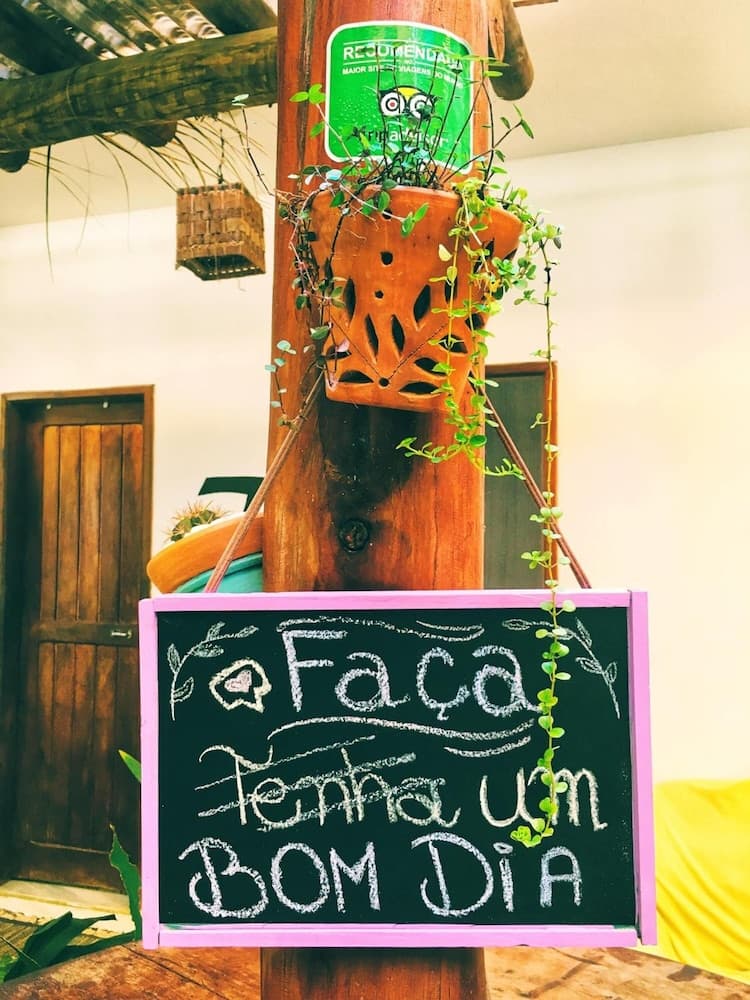 RECOMENDADA
NO
MAIOR SITE DE VIAGENS DO
tripadvisor
Faça
Tenha um
BOM DiA